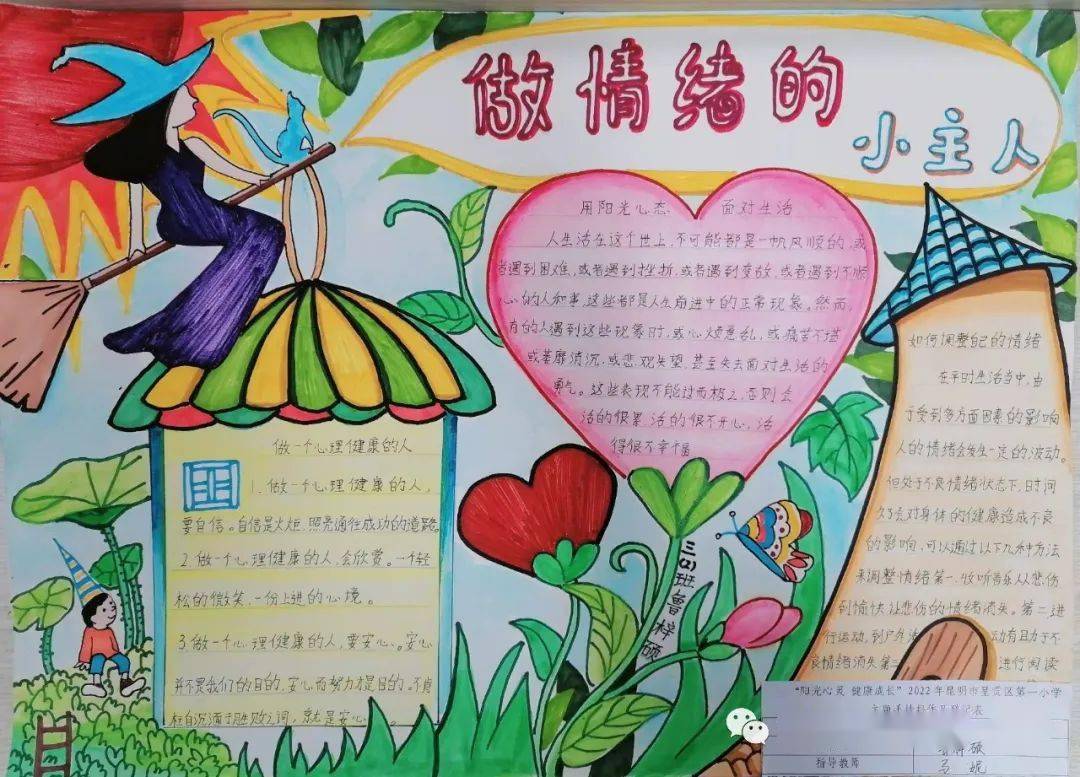 做情绪的
小主人
用阳光心态 面对生活
人生活在这个世上,不可能都是一帆风顺的,或
者遇到困难,或者遇到挫折,或者遇到变故,或者遇到不顺
心的人和事,这些都是人生前进中的正常现象。然而,
有的人遇到这些现象时,或心烦意乱,或痛苦不堪
或萎靡消沉,或悲观失望,甚至失去面对生活的
勇气。这些表现不能过而极之,否则会
活的很累,活的很不开心,活
得很不幸福
做一个心理健康的人
1.做一个心理健康的人,
要自信。自信是火炬,照亮通往成功的道路。
2.做一个心理健康的人,会欣赏。一个轻
松的微笑,一份上进的心境。
3.做一个心理健康的人,要安心。安心
并不是我们的目的,安心而努力才是目的。
三(2)班鲁梓硕
如何调整自己的情绪
在平时生活当中,由
于受到多方面因素的影响
人的情绪会发生一定的波动。
但处于不良情绪状态下,时间
久了会对身体的健康造成不良
的影响,可以通过以下几种方法
来调整情绪第一.收听音乐从悲伤
到愉快让悲伤的情绪消失。第二进
行运动,到户外 动有助于不
良情绪消失第三 进行阅读
“阳光心灵 健康成长”2022年昆明市呈贡区第一小学
指导教师